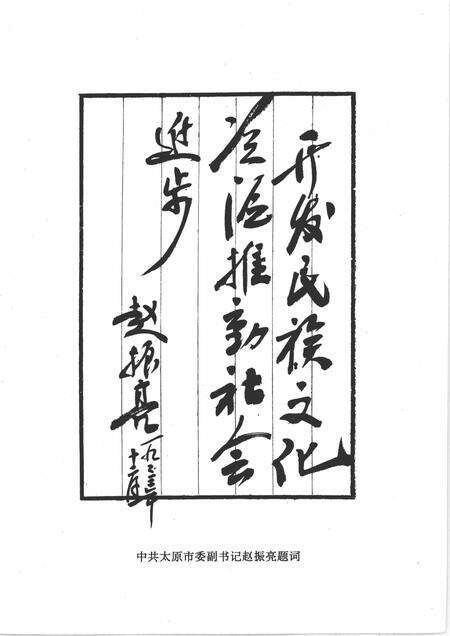 开发民族文化
资源推动社会
进步
赵振亮
一九九三年
中共太原市委副书记赵振亮题词